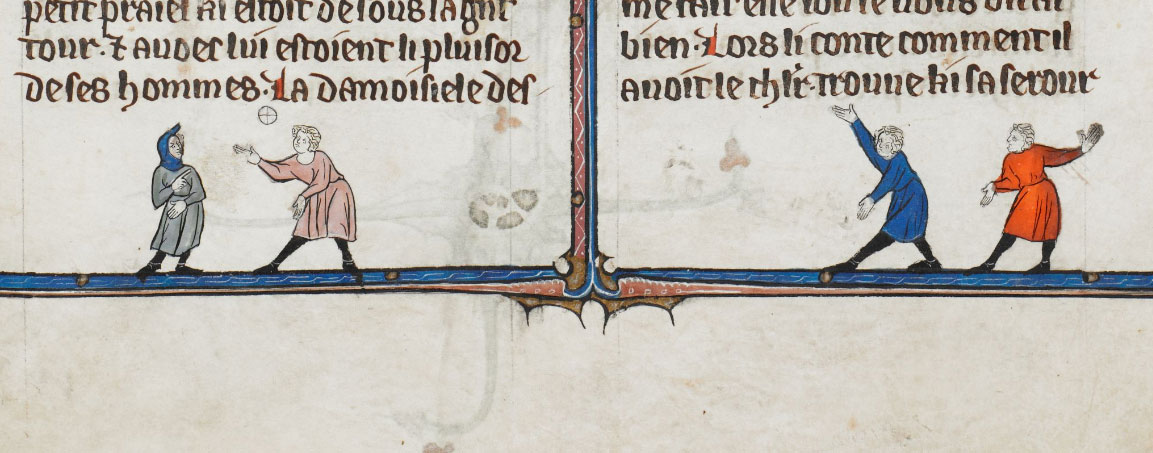 petit praiel ki estoit desous la gnt
tour. ⁊ auoec lui estoient li pluisor
de ses hommes. La damoisiele des
me fait elle iou le uous dirai
bien. Lors li conte comment il
auoit le chlr. trouue ki sa serour